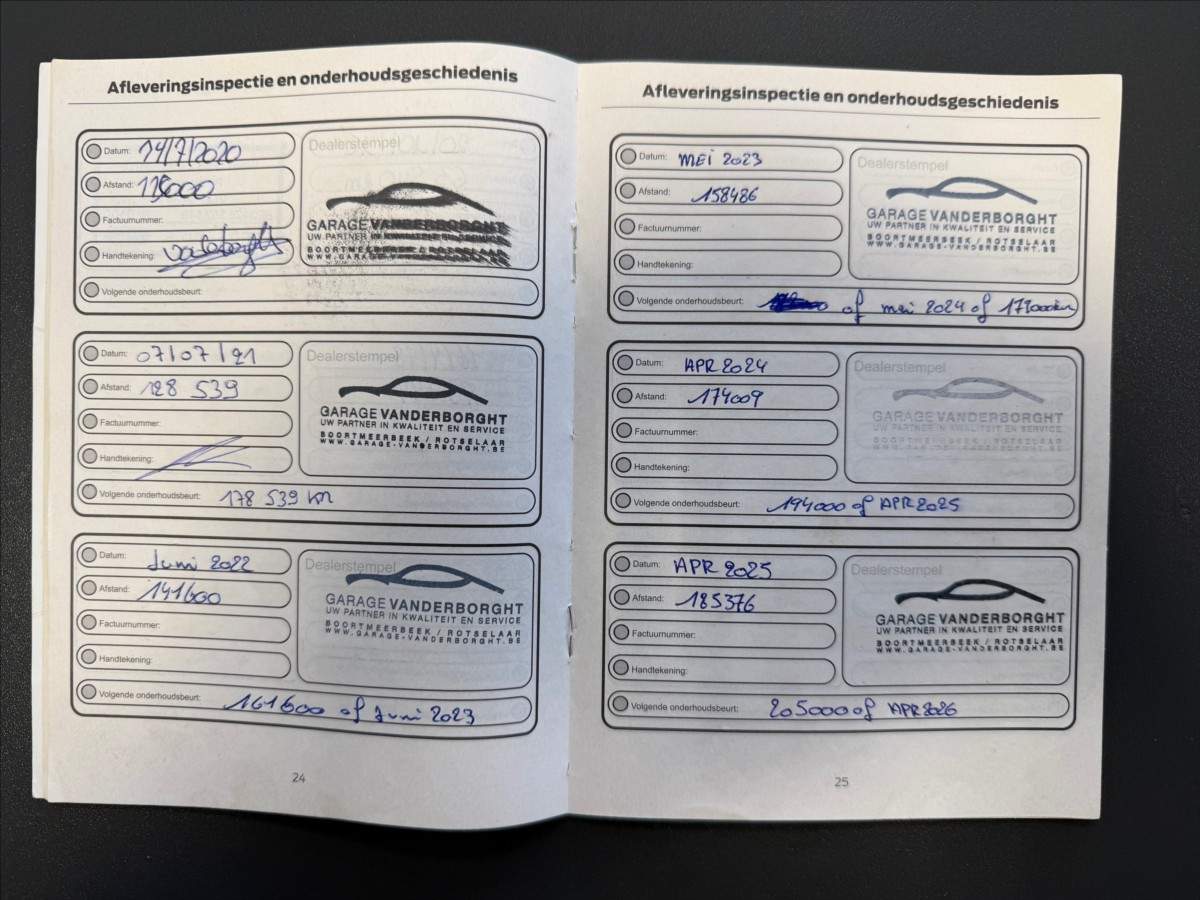 Afleveringsinspectie en onderhoudsgeschiedenis
Datum: 14/7/2020
Dealerstempel
Afstand: 115000
GARAGE VANDERBORGHT
UW PARTNER IN KWALITEIT EN SERVICE
BOORTMEERBEEK / ROTSELAAR
WWW.GARAGE-VANDERBORGHT.BE
Factuurnummer:
Handtekening: Vanderborght
Volgende onderhoudsbeurt:
Datum: 07/07/21
Dealerstempel
Afstand: 128 539
GARAGE VANDERBORGHT
UW PARTNER IN KWALITEIT EN SERVICE
BOORTMEERBEEK / ROTSELAAR
WWW.GARAGE-VANDERBORGHT.BE
Factuurnummer:
Handtekening:
Volgende onderhoudsbeurt: 178 539 km
Datum: Juni 2022
Dealerstempel
Afstand: 141600
GARAGE VANDERBORGHT
UW PARTNER IN KWALITEIT EN SERVICE
BOORTMEERBEEK / ROTSELAAR
WWW.GARAGE-VANDERBORGHT.BE
Factuurnummer:
Handtekening:
Volgende onderhoudsbeurt: 161600 of Juni 2023
24
Afleveringsinspectie en onderhoudsgeschiedenis
Datum: MEI 2023
Dealerstempel
Afstand: 158486
GARAGE VANDERBORGHT
UW PARTNER IN KWALITEIT EN SERVICE
BOORTMEERBEEK / ROTSELAAR
WWW.GARAGE-VANDERBORGHT.BE
Factuurnummer:
Handtekening:
Volgende onderhoudsbeurt: of mei 2024 of 179000km
Datum: APR 2024
Dealerstempel
Afstand: 174009
GARAGE VANDERBORGHT
UW PARTNER IN KWALITEIT EN SERVICE
BOORTMEERBEEK / ROTSELAAR
WWW.GARAGE-VANDERBORGHT.BE
Factuurnummer:
Handtekening:
Volgende onderhoudsbeurt: 194000 of APR 2025
Datum: APR 2025
Dealerstempel
Afstand: 185376
GARAGE VANDERBORGHT
UW PARTNER IN KWALITEIT EN SERVICE
BOORTMEERBEEK / ROTSELAAR
WWW.GARAGE-VANDERBORGHT.BE
Factuurnummer:
Handtekening:
Volgende onderhoudsbeurt: 205000 of APR 2026
25